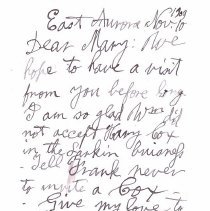 East Aurora Nov 6
1909
Dear Mary: We
hope to have a visit
from you before long
I am so glad did
not accept Harry Cox
in the Larkin business
- Tell Frank never
to invite a Cox -
- Give my love to